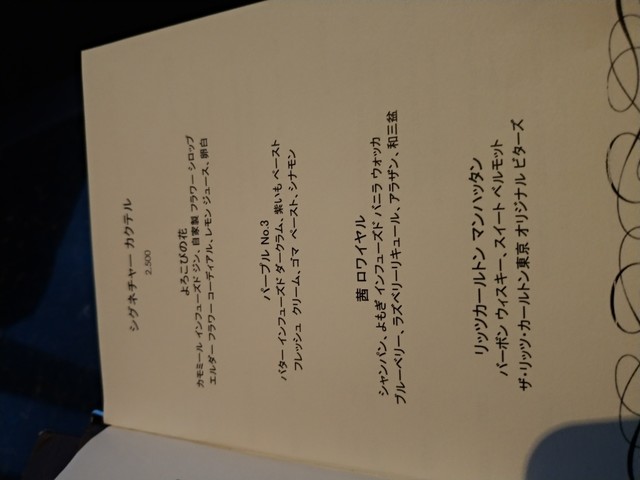 シグネチャー カクテル
2,500
よろこびの花
カモミール インフューズド ジン、自家製 フラワー シロップ
エルダー フラワー コーディアル、レモン ジュース、卵白
パープル No.3
バター インフューズド ダークラム、紫いも ペースト
フレッシュ クリーム、ゴマ ペースト、シナモン
茜 ロワイヤル
シャンパン、よもぎ インフューズド バニラ ウォッカ
ブルーベリー、ラズベリーリキュール、アラザン、和三盆
リッツカールトン マンハッタン
バーボン ウィスキー、スイート ベルモット
ザ・リッツ・カールトン東京 オリジナル ビターズ